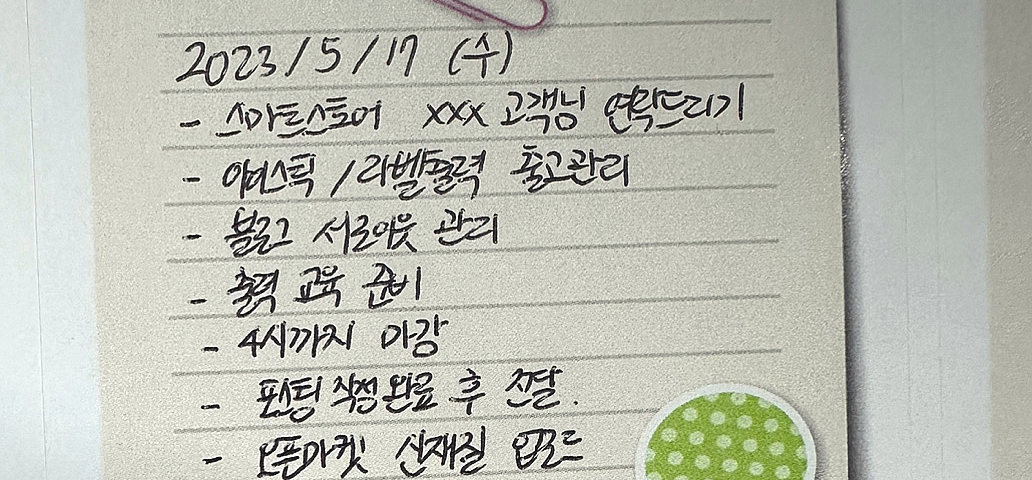 2023/5/17 (수)
- 스마트스토어 xxx 고객님 연락드리기
- 아더스틱 /라벨출력 출고관리
- 블로그 서로이웃 관리
- 출력 교육 준비
- 4시까지 마감
- 포스팅 작성완료 후 전달.
- 오픈마켓 신재질 업로드